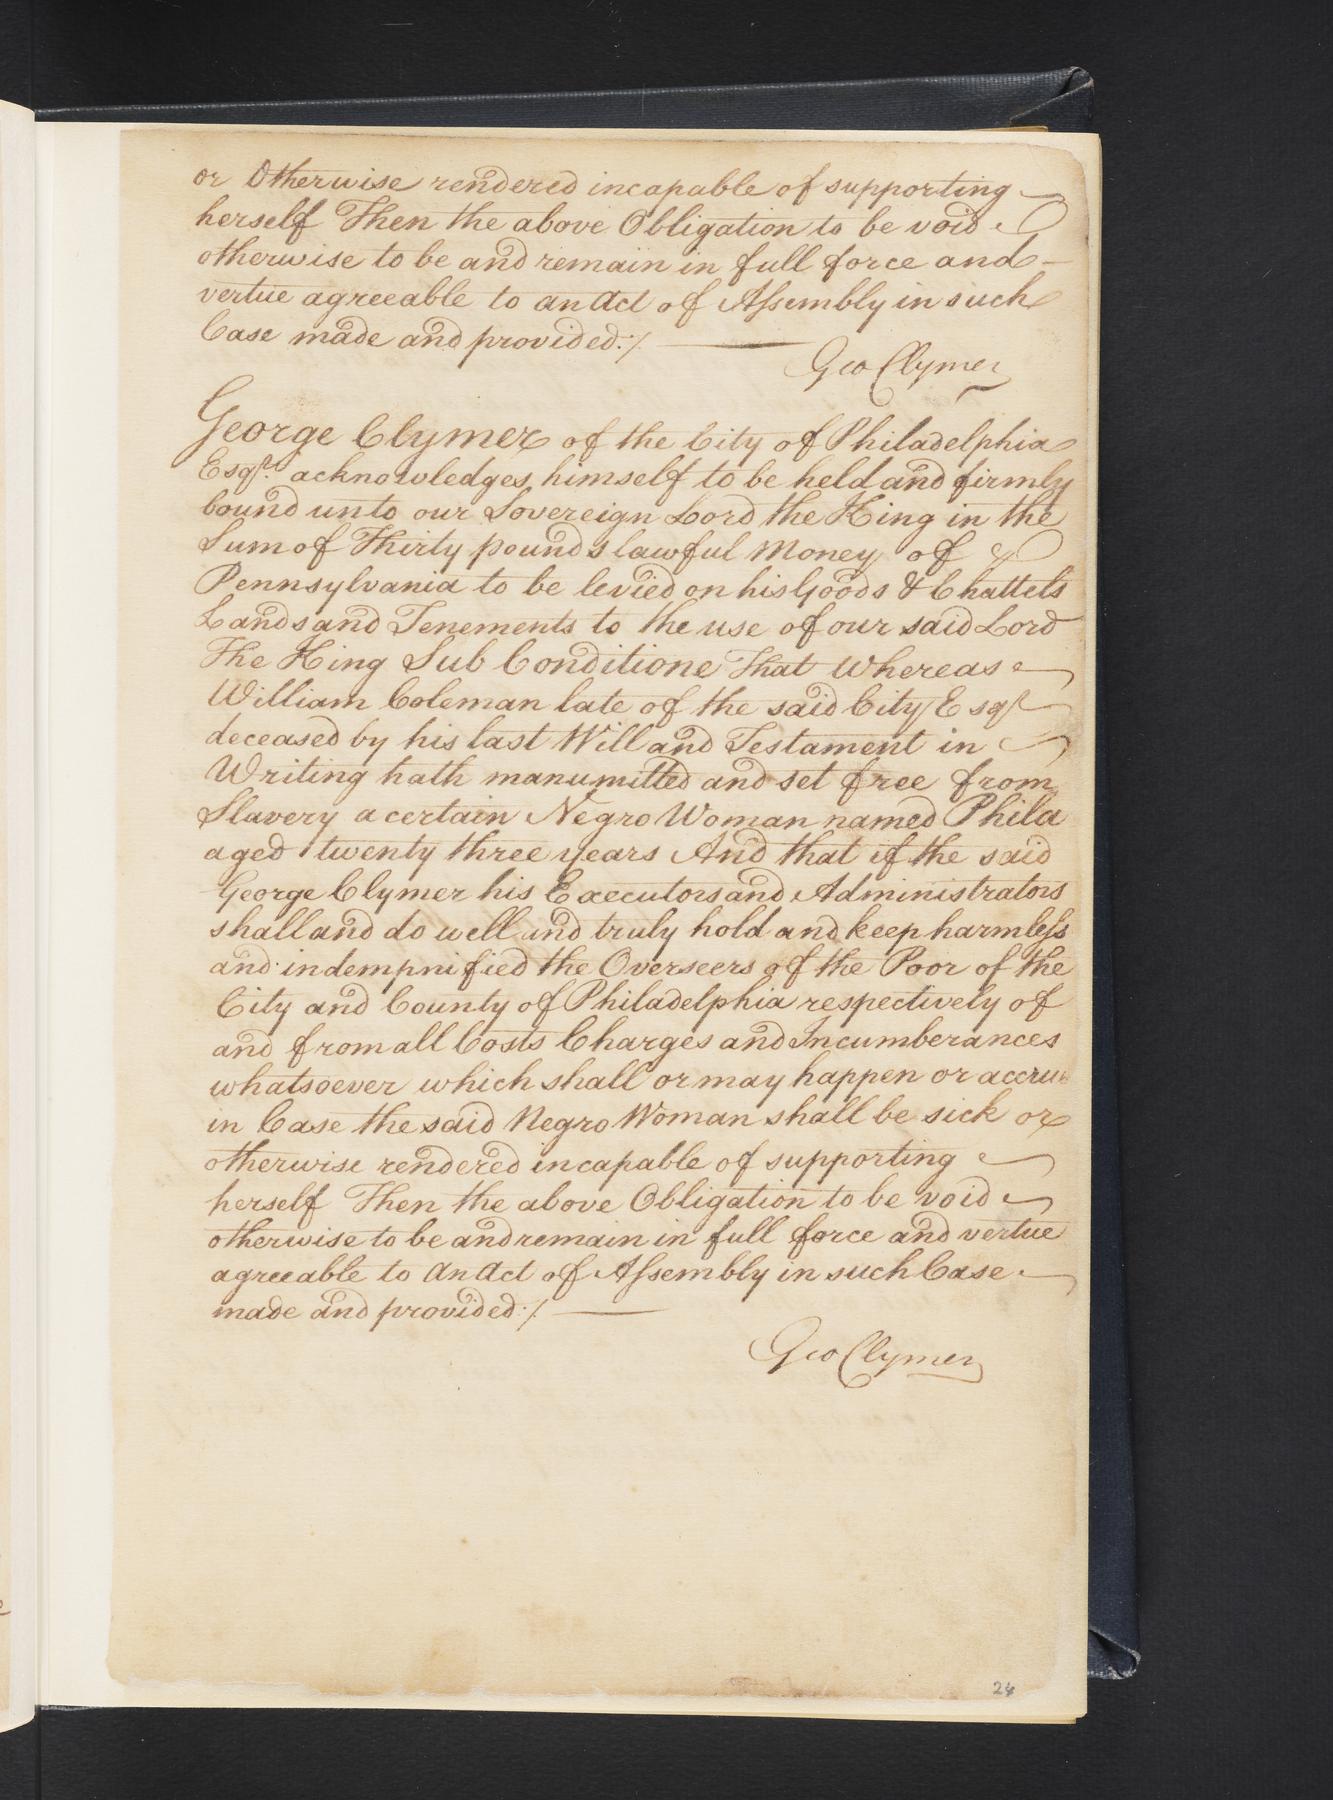 or Otherwise rendered incapable of supporting
herself Then the above Obligation to be void
otherwise to be and remain in full force and
vertue agreeable to an Act of Assembly in such
Case made and provided:/.
Geo Clymer
George Clymer of the City of Philadelphia
Esqr. acknowledges himself to be held and firmly
bound unto our Sovereign Lord the King in the
Sum of Thirty pounds lawful Money of
Pennsylvania to be levied on his Goods & Chattels
Lands and Tenements to the use of our said Lord
The King Sub Conditione That Whereas
William Coleman late of the said City Esqr
deceased by his last Will and Testament in
Writing hath manumitted and set free from
Slavery a certain Negro Woman named Phila
aged twenty three years And that if the said
George Clymer his Executors and Administrators
shall and do well and truly hold and keep harmless
and indempnified the Overseers of the Poor of the
City and County of Philadelphia respectively of
and from all Costs Charges and Incumberances
whatsoever which shall or may happen or accrue
in Case the said Negro Woman shall be sick or
otherwise rendered incapable of supporting
herself Then the above Obligation to be void
otherwise to be and remain in full force and vertue
agreeable to an Act of Assembly in such Case
made and provided:/.
Geo Clymer
24